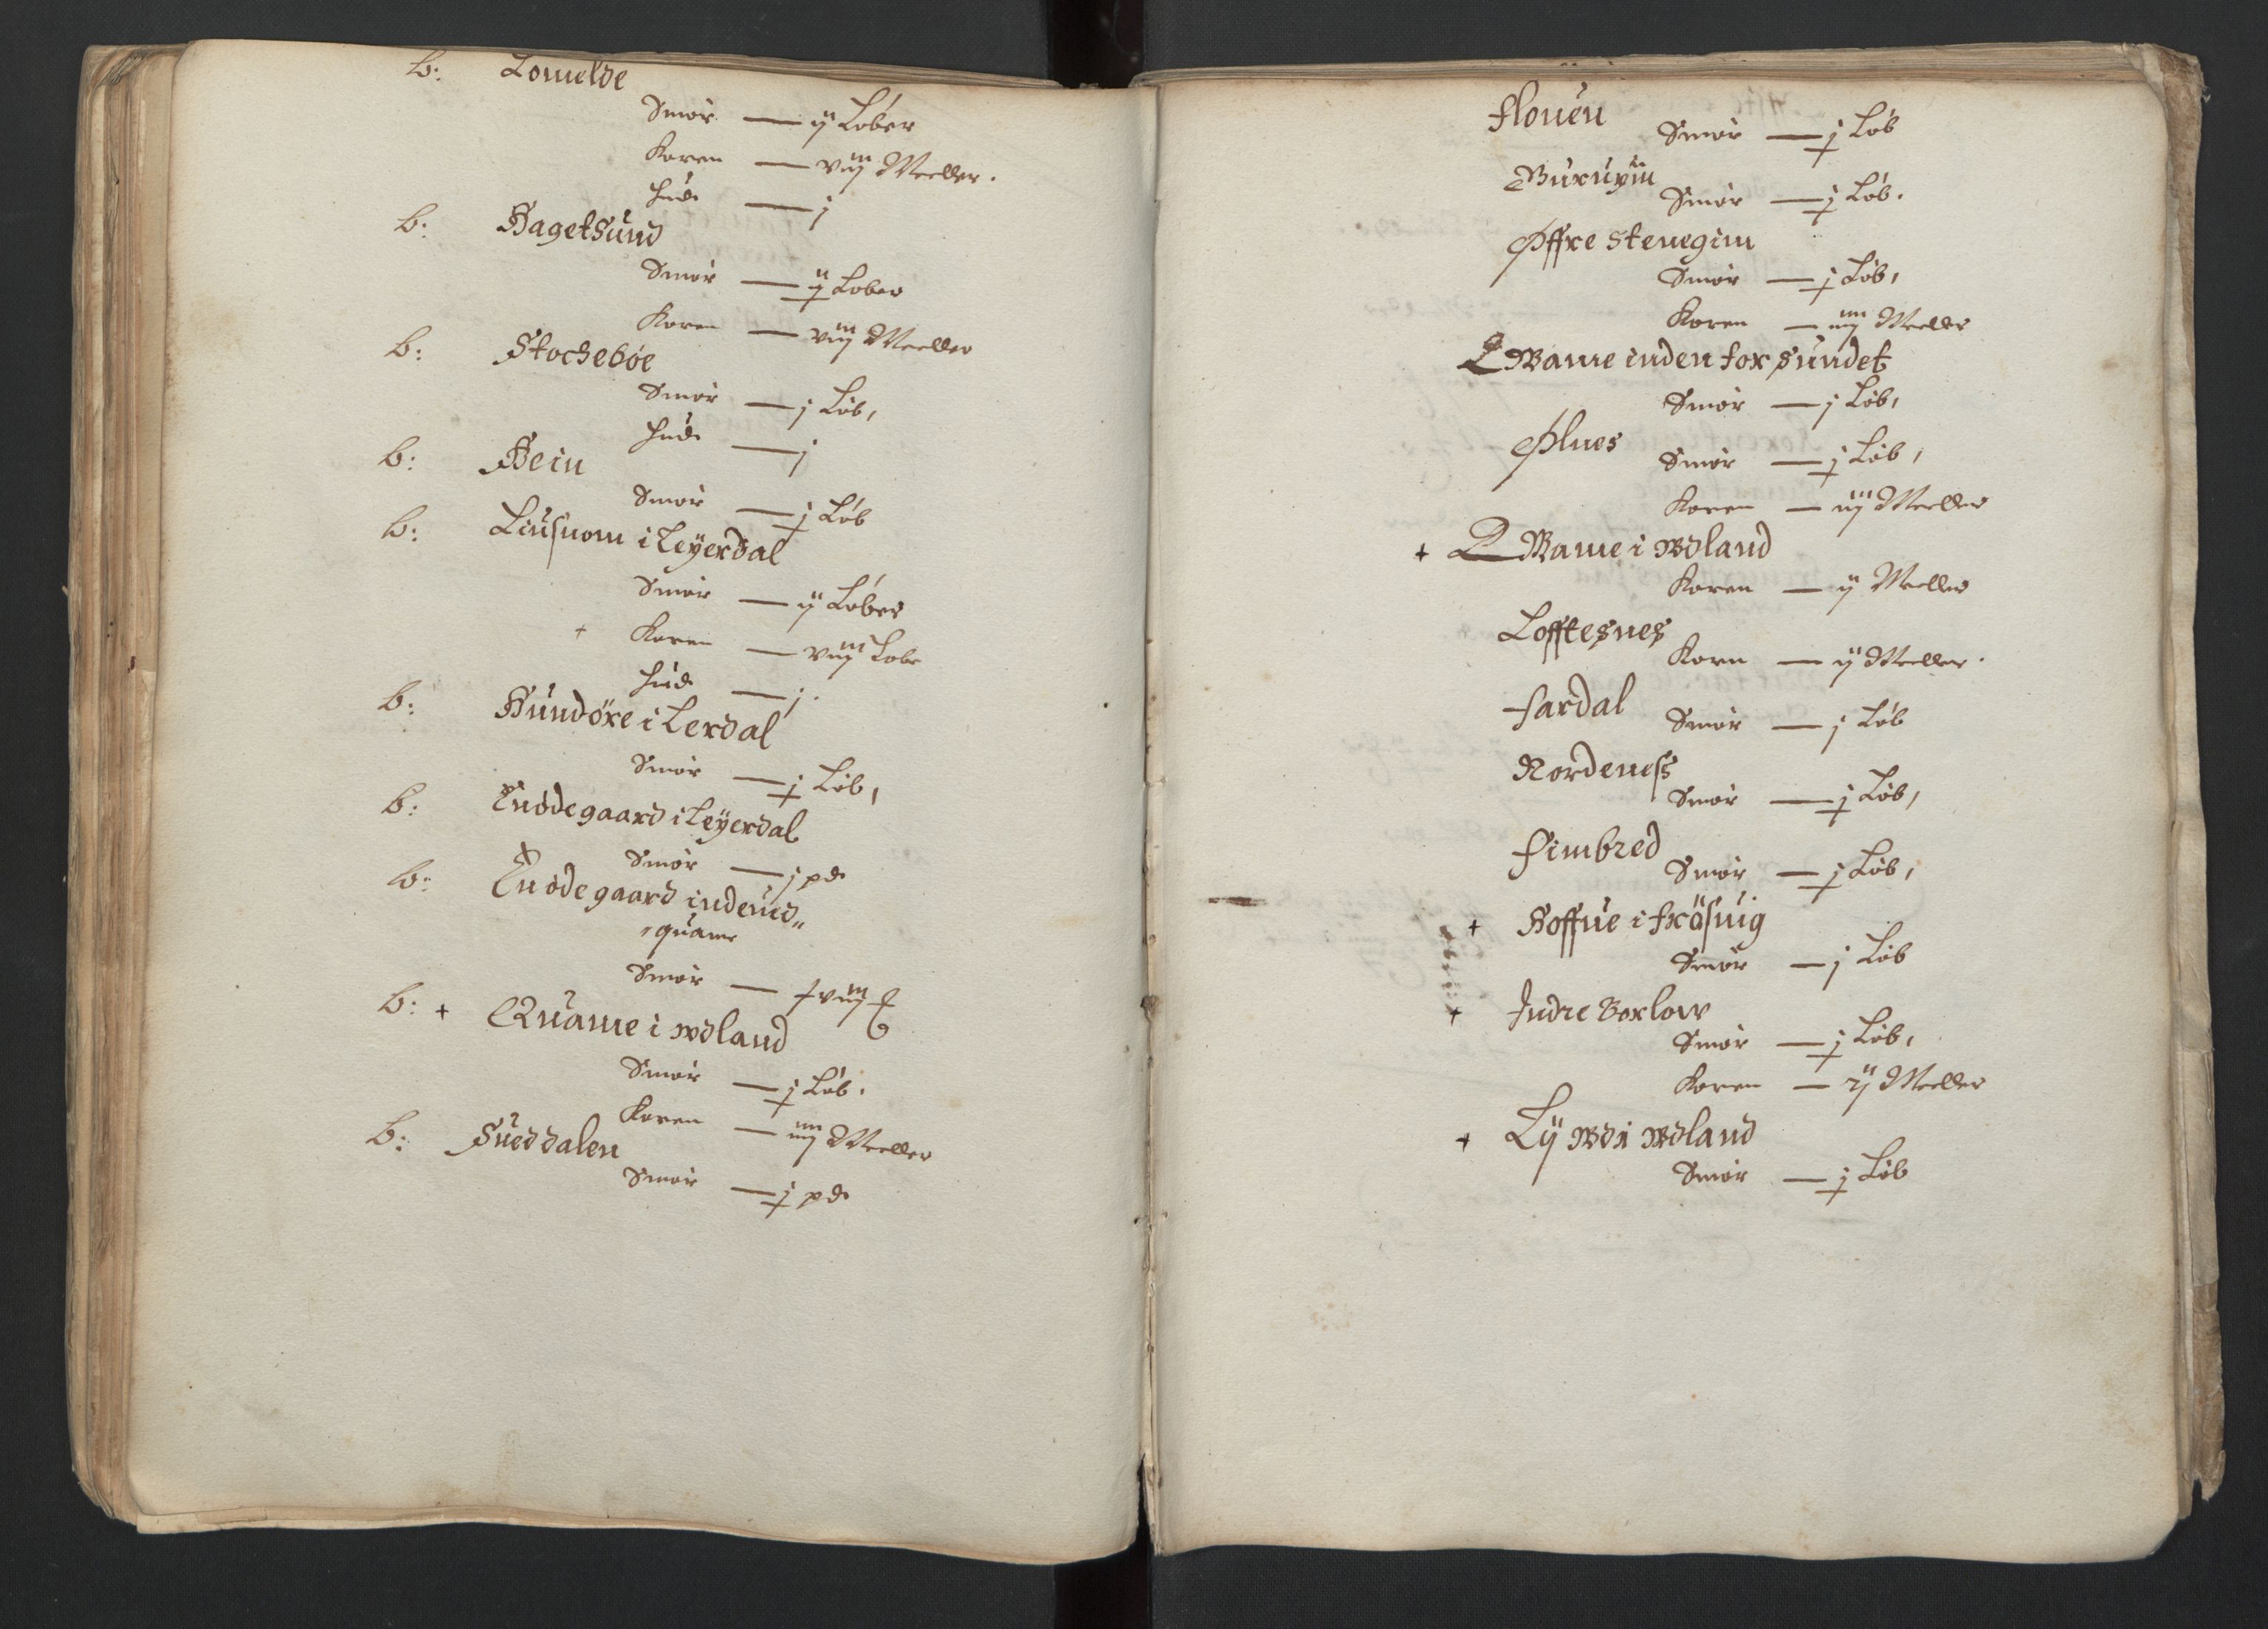 b: Lomelde
Smør — ij Løber
Koren — viij Meeller.
Hud — j
b: Hagetsund
Smør — ij Løber
Koren — viij Meeller
b: Stochebøe
Smør — j Løb,
Hud — j
b: Hein
Smør — j Løb
b: Liusnom i Leÿerdal
Smør — ij Løber
+ Koren — viij Løbe
Hud — j.
b: Hundøre i Lerdal
Smør — j Løb,
b: En ødegaard i Leÿerdal
Smør — j pd
b: En ødegaard indenid„
„quame
Smør — xviij
b: + Quame i wdland
Smør — j Løb.
Koren — iiij Meeller
b: Sueddalen
Smør — j pd
Flouen
Smør — j Løb
Buruyin
Smør — j Løb.
Øffre Stenegim
Smør — j Løb,
Koren — iiij Meeller
Qwame inden for sundet
Smør — j Løb,
Ølnes
Smør — j Løb,
Koren — iij Meeller
+ Qwame i wdland
Koren — ij Meeller
Lofftesnes
Korn — ij Meeller.
Fardal
Smør — j Løb
Nordeness
Smør — j Løb,
Fimbred
Smør — j Løb,
+ Hoffue i frøsuig
Smør — j Løb
+ Indre Borlow
Smør — j Løb,
Koren — ij Meeller
+ Lÿ wdi wdland
Smør — j Løb